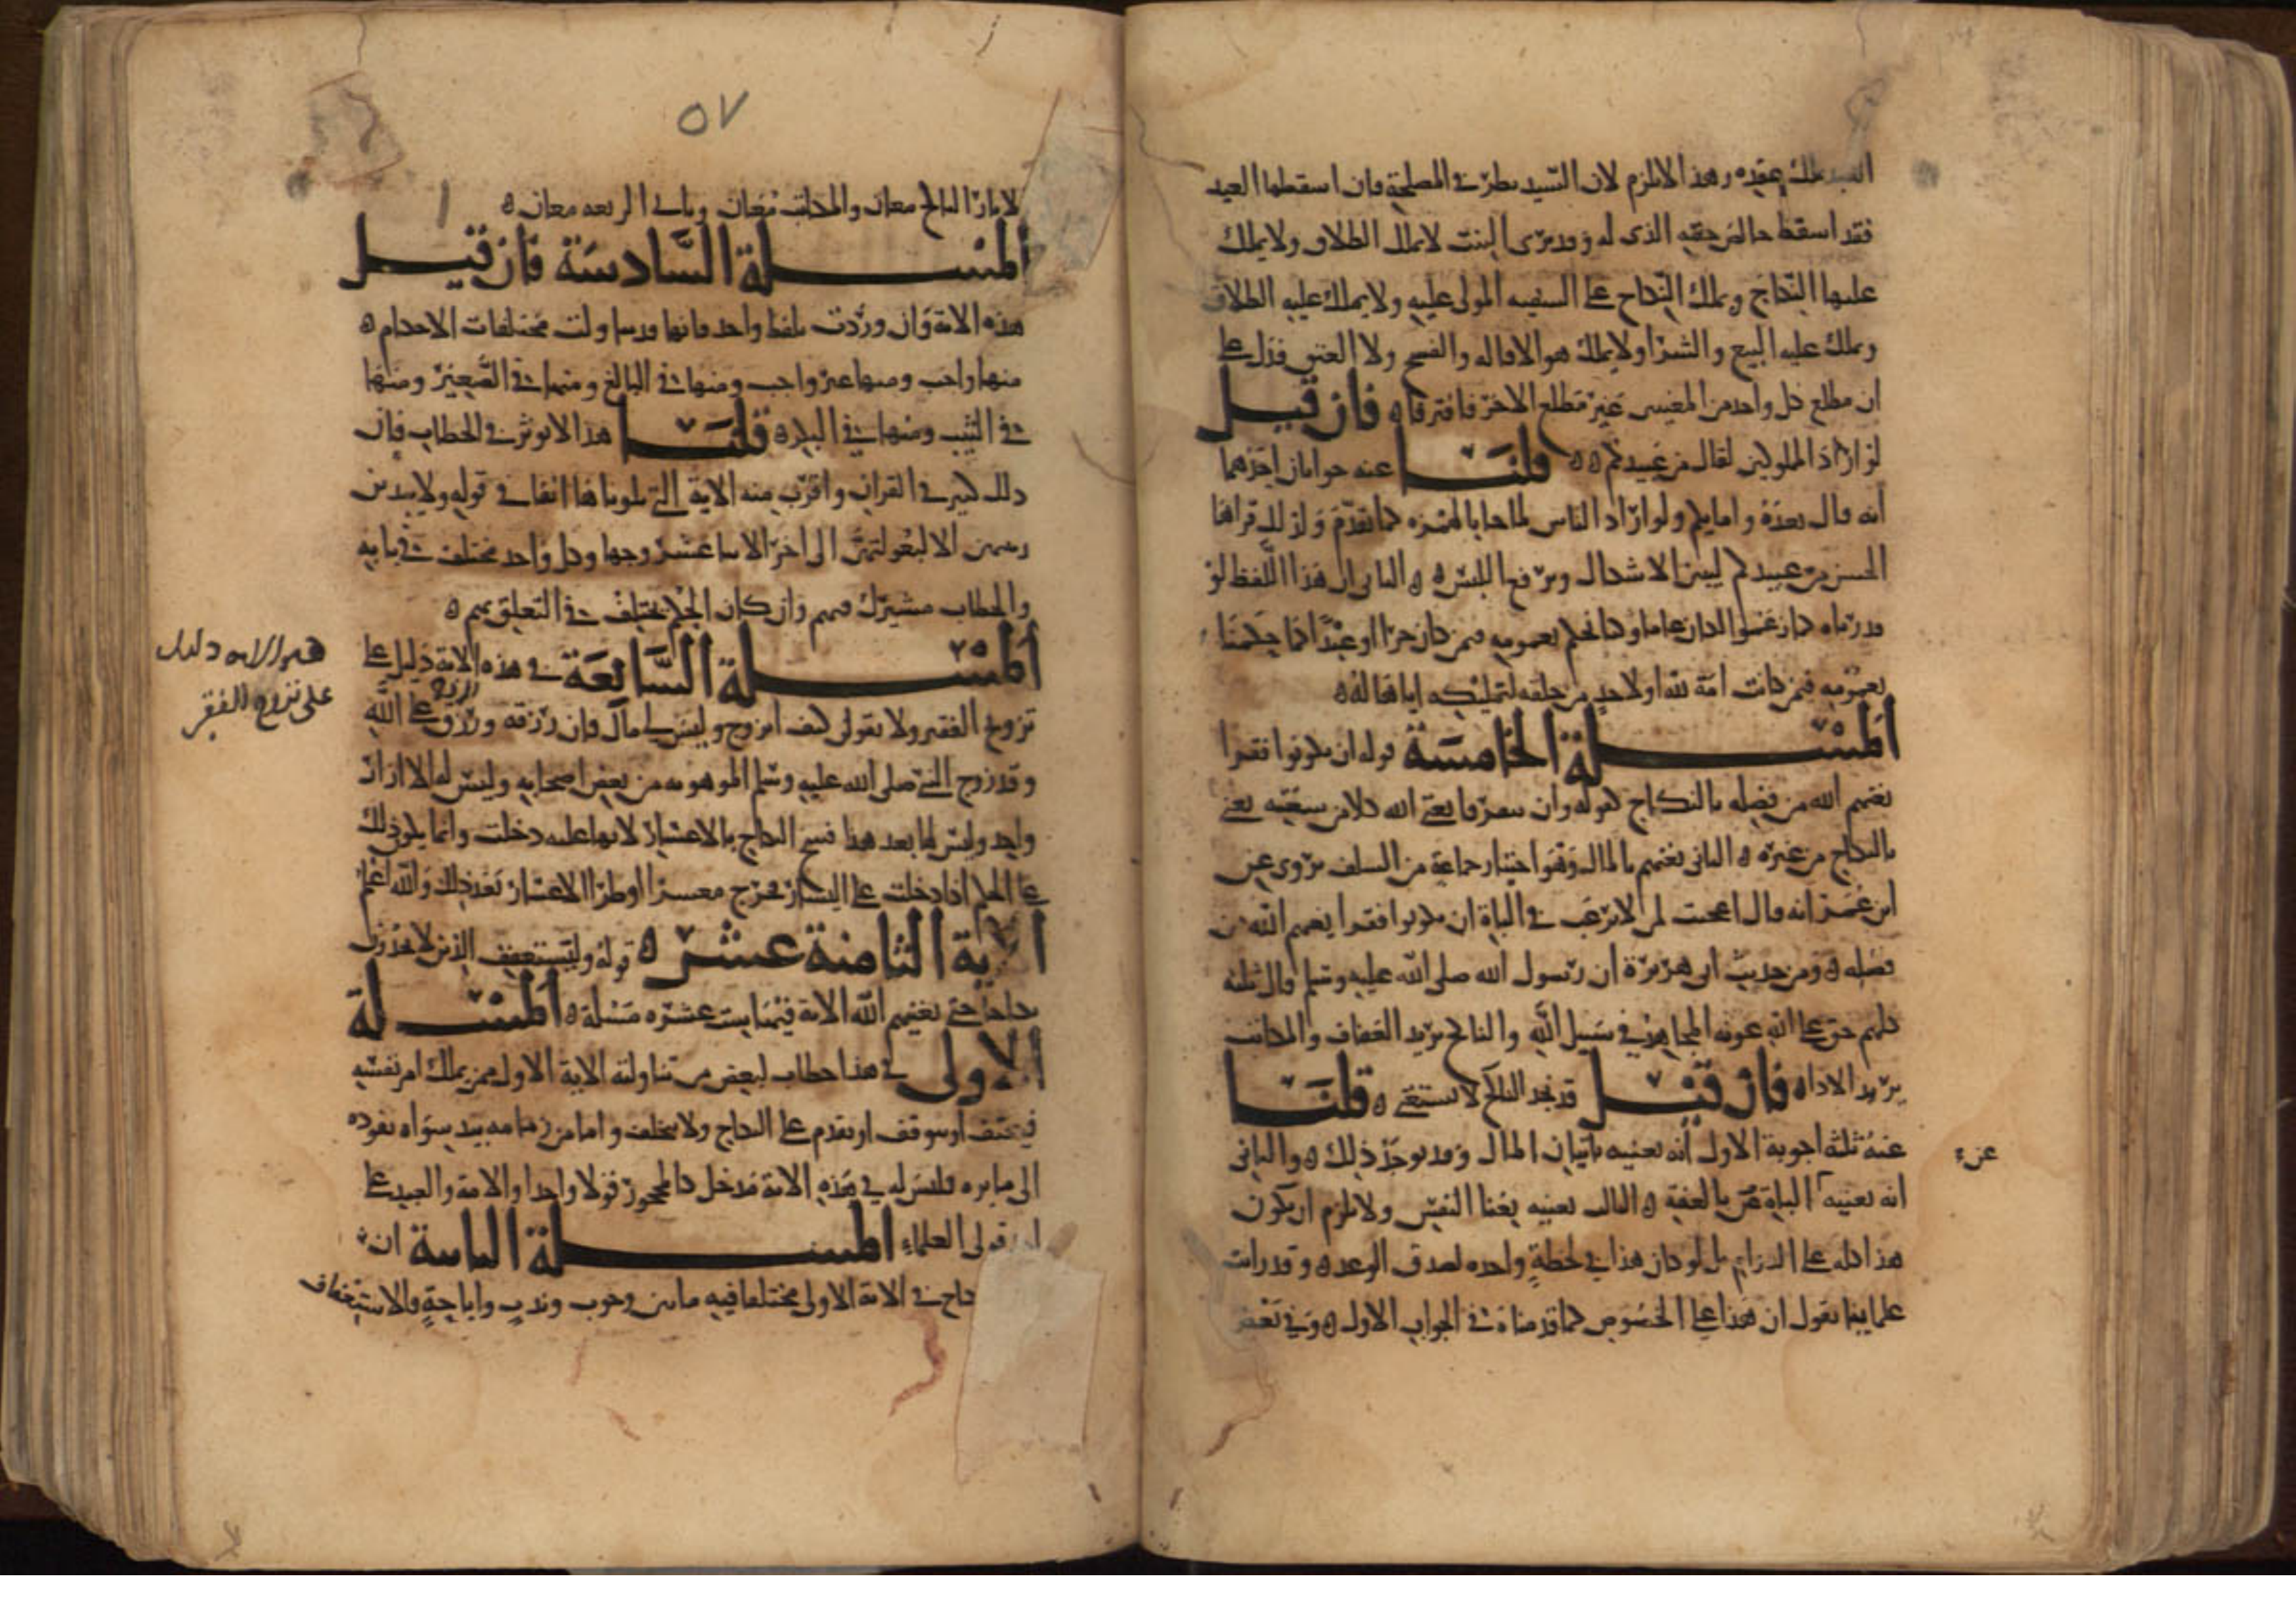 العبد يملك عقده وهذا لا يلزم لان السيد ينظر في المصلحة فان اسقطها العبد
فقد اسقط خالص حقه الذي له وقد نرى البنت لا يملك الطلاق ولا يملك
عليها النكاح ويملك النكاح على السفيه المولى عليه ولا يملك عليه الطلاق
ويملك عليه البيع والشرا ولا يملك هو الاقاله والفسخ ولا العتق فدل على
ان مطلع كل واحد من المعنيين غير مطلع الاخر فافترقا ه فان قيل
لو اراد المملوكين لقال من عبيدكم ه ه قلنا عنه جوابان احدهما
انه قال بعده وامايكم ولو اراد الناس لما جا بالهمزه كما تقدم وكذلك قراها
الحسن من عبيدكم ليبين الاشكال ويرفع اللبس ه ه الثاني ان هذا اللفظ لو
قدرناه كما زعمتم لكان عاما وكنا نحكم بعمومه فيمن كان حرا او عبدا كما حكمنا
بعمومه فيمن كانت امة لله او لاحد من خلقه لتمليكه اياها له ه
المسلة الخامسة قوله ان يكونوا فقرا
يغنهم الله من فضله بالنكاح كقوله وان يتفرقا يغن الله كلا من سعته يعني
بالنكاح من غيره ه الثاني يغنهم بالمال وهو اختيار جماعة من السلف يروى عن
ابن عمر انه قال اعجبت لمن لا يرغب في الباة ان يكونوا فقرا يغنهم الله من
فضله ه ومن حديث ابي هريرة ان رسول الله صلى الله عليه وسلم قال ثلثه
كلهم حق على الله عونه المجاهد في سبيل الله والناكح يريد العفاف والمكاتب
يريد الاداه فان قيل قد نجد الناكح لا يستغني ه قلنا
عنه ثلثة اجوبة الاول انه يغنيه باتيان المال وقد يوجد ذلك ه والثاني
عن
انه يغنيه الباة بالعفة ه الثالث يغنيه بغنا النفس ولا يلزم ان يكون
هذا كله على الدوام بل لو كان هذا في لحظة واحده لصدق الوعد ه وقد رايت
علماينا يقول ان هذا على الخصوص كما قدمناه في الجواب الاول ه وفي بعض
٥٧
الناكح معان والمكاتب معان معان ه
المسلة السادسة فان قيل
هذه الاية وان وردت بلفظ واحد فانها قد تناولت مختلفات الاحكام ه
منها واجب ومنها غير واجب ومنها في البالغ ومنها في الصغير ومنها
في الثيب ومنها في البكر ه قلنا هذا لا يوثر في الخطاب فان
ذلك كثير في القران واقرب منه الاية التي تلوناها انفا في قوله ولا يبدين
زينتهن الا لبعولتهن الى اخر الاثنا عشر وجها وكل واحد مختلف في بابه
والخطاب مشترك فيهم وان كان الحكم يختلف في التعلق بهم ه
المسلة السابعة في هذه الاية دليل على
هذه الاية دليل
على تزوج الفقير
تزويج الفقير ولا يقولن كيف اتزوج وليس لي مال فان رزقه ورزق الزوج على الله
وقد زوج النبي صلى الله عليه وسلم الموهوبه من بعض اصحابه وليس له الا ازار
واحد وليس لها بعد هذا فسخ النكاح بالاعسار لانها عليه دخلت وانما يكون ذلك
على الحكم اذا دخلت على اليسار فخرج معسرا او طرا الاعسار بعد ذلك والله اعلم
الاية الثامنة عشر ه قوله وليستعفف الذين لا يجدون
نكاحا حتى يغنيهم الله الاية فيها ست عشره مسلة ه المسلة
الاولى في هذا خطاب لبعض من تناولته الاية الاولى ممن يملك امر نفسه
فيتعفف او يتوقف او يقدم على النكاح ولا يتخلف واما من زمامه بيد سواه يقوده
الى ما يره فليس له في هذه الاية مدخل كالمحجور قولا واحدا والامة والعبد على
احد قولي العلماء المسلة الثانية ان
النكاح في الاية الاولى مختلفا فيه ما بين وجوب وندب واباحة فالاستعفاف